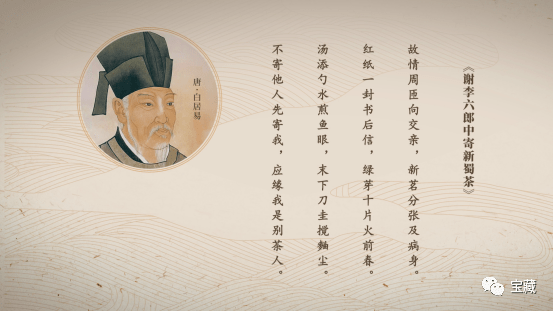 《謝李六郎中寄新蜀茶》
故情周匝向交亲，新茗分张及病身。
红纸一封书后信，绿芽十片火前春。
汤添勺水煎鱼眼，末下刀圭搅麴尘。
不寄他人先寄我，应缘我是别茶人。
唐·白居易
宝藏